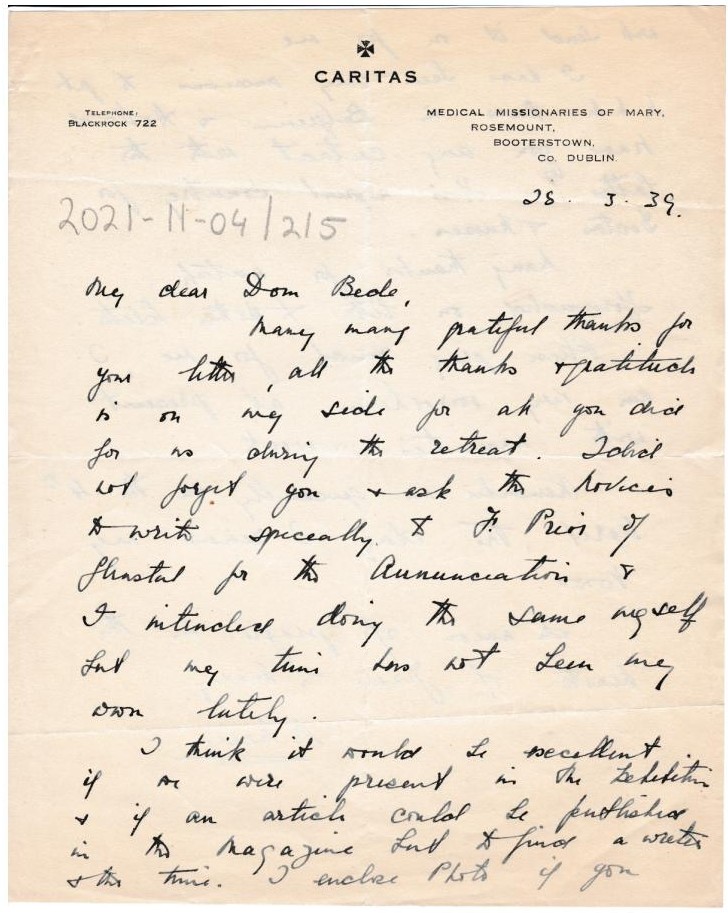 CARITAS
TELEPHONE:
BLACKROCK 722
MEDICAL MISSIONARIES OF MARY,
ROSEMOUNT,
BOOTERSTOWN,
Co. DUBLIN.
28. 3. 39.
2021-11-04/215
My dear Dom Bede,
Many many grateful thanks for
your letter, all the thanks & gratitude
is on my side for all you did
for us during the retreat. I did
not forget you & ask the Novices
to write specially to Fr. Prior of
Glenstal for the Annunciation &
I intended doing the same myself
but my time has not been my
own lately.
I think it would be excellent
if we were present in the Exhibition
& if an article could be published
in the Magazine but to find a writer
& the time. I enclose Photo if you